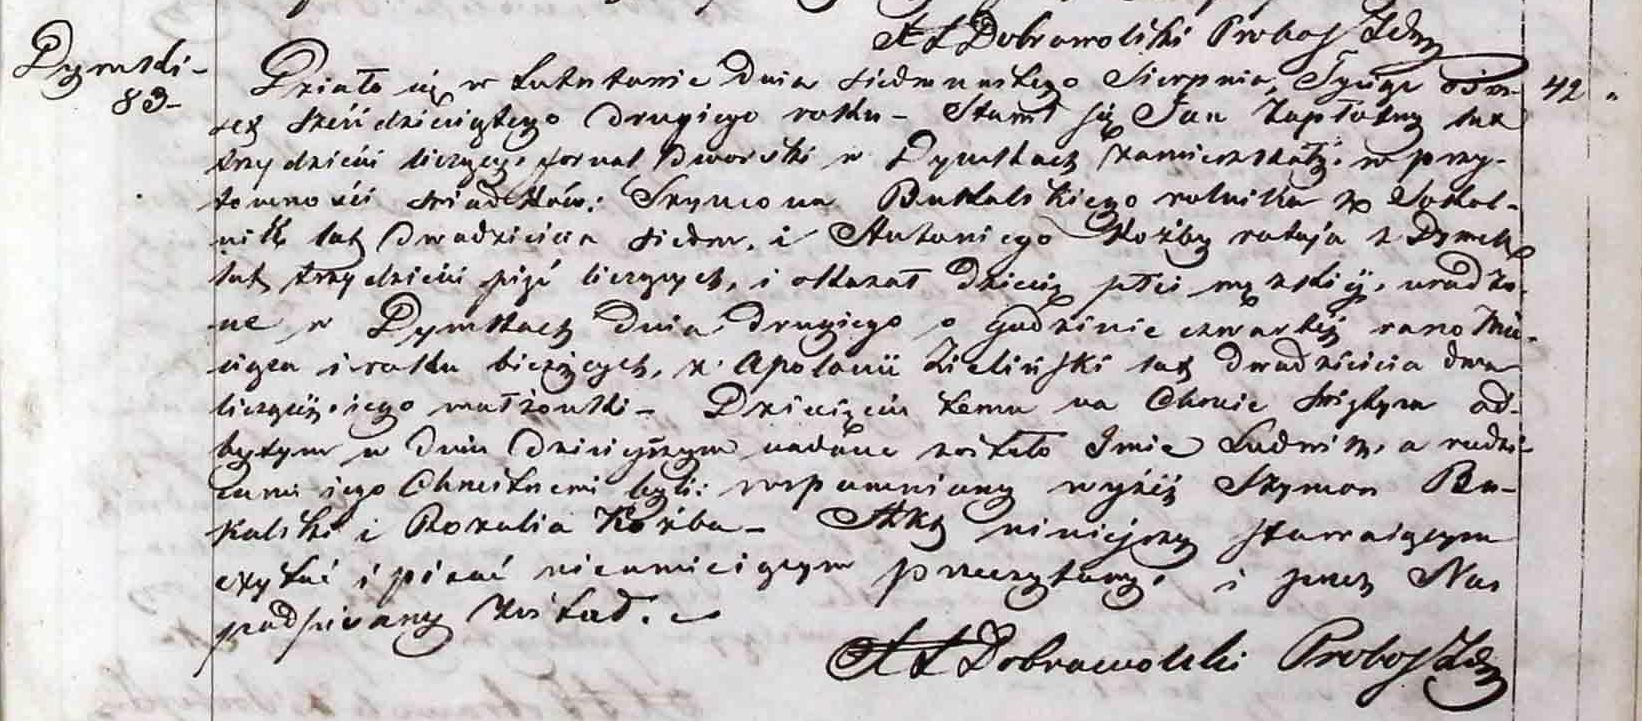 X L Dobrowolski Probosz
Dymski - Działo się w Lututowie dnia siedmnastego Sierpnia, Tysiąc ośm- 42
83 - set sześćdziesiątego drugiego roku - Stawił się Jan Zapłotny lat
trzydzieści liczący, fornal dworski w Dymkach zamieszkały, w przy-
tomności świadków: Szymona Bukalskiego rolnika ze Sokol-
nik lat dwadzieścia siedm, i Antoniego Koźby rataja z Dymek
lat trzydzieści pięć liczących, i okazał dziecię płci męzkiej, urodzo-
ne w Dymkach dnia drugiego o godzinie czwartej rano Mie-
siąca i roku bieżących, z Apolonii Zieliński lat dwadzieścia dwa
liczącej, jego małżonki - Dziecięciu temu na Chrcie Świętym od-
bytym w dniu dzisiejszym nadane zostało Imie Ludwik, a rodzi-
cami jego Chrestnemi byli: wspomniany wyżej Szymon Bu-
kalski i Rozalia Koźba - Akt niniejszy stawaiącym
czytać i pisać nieumieiącym przeczytany, i przez Nas
podpisany został.
X L Dobrowolski Probosz